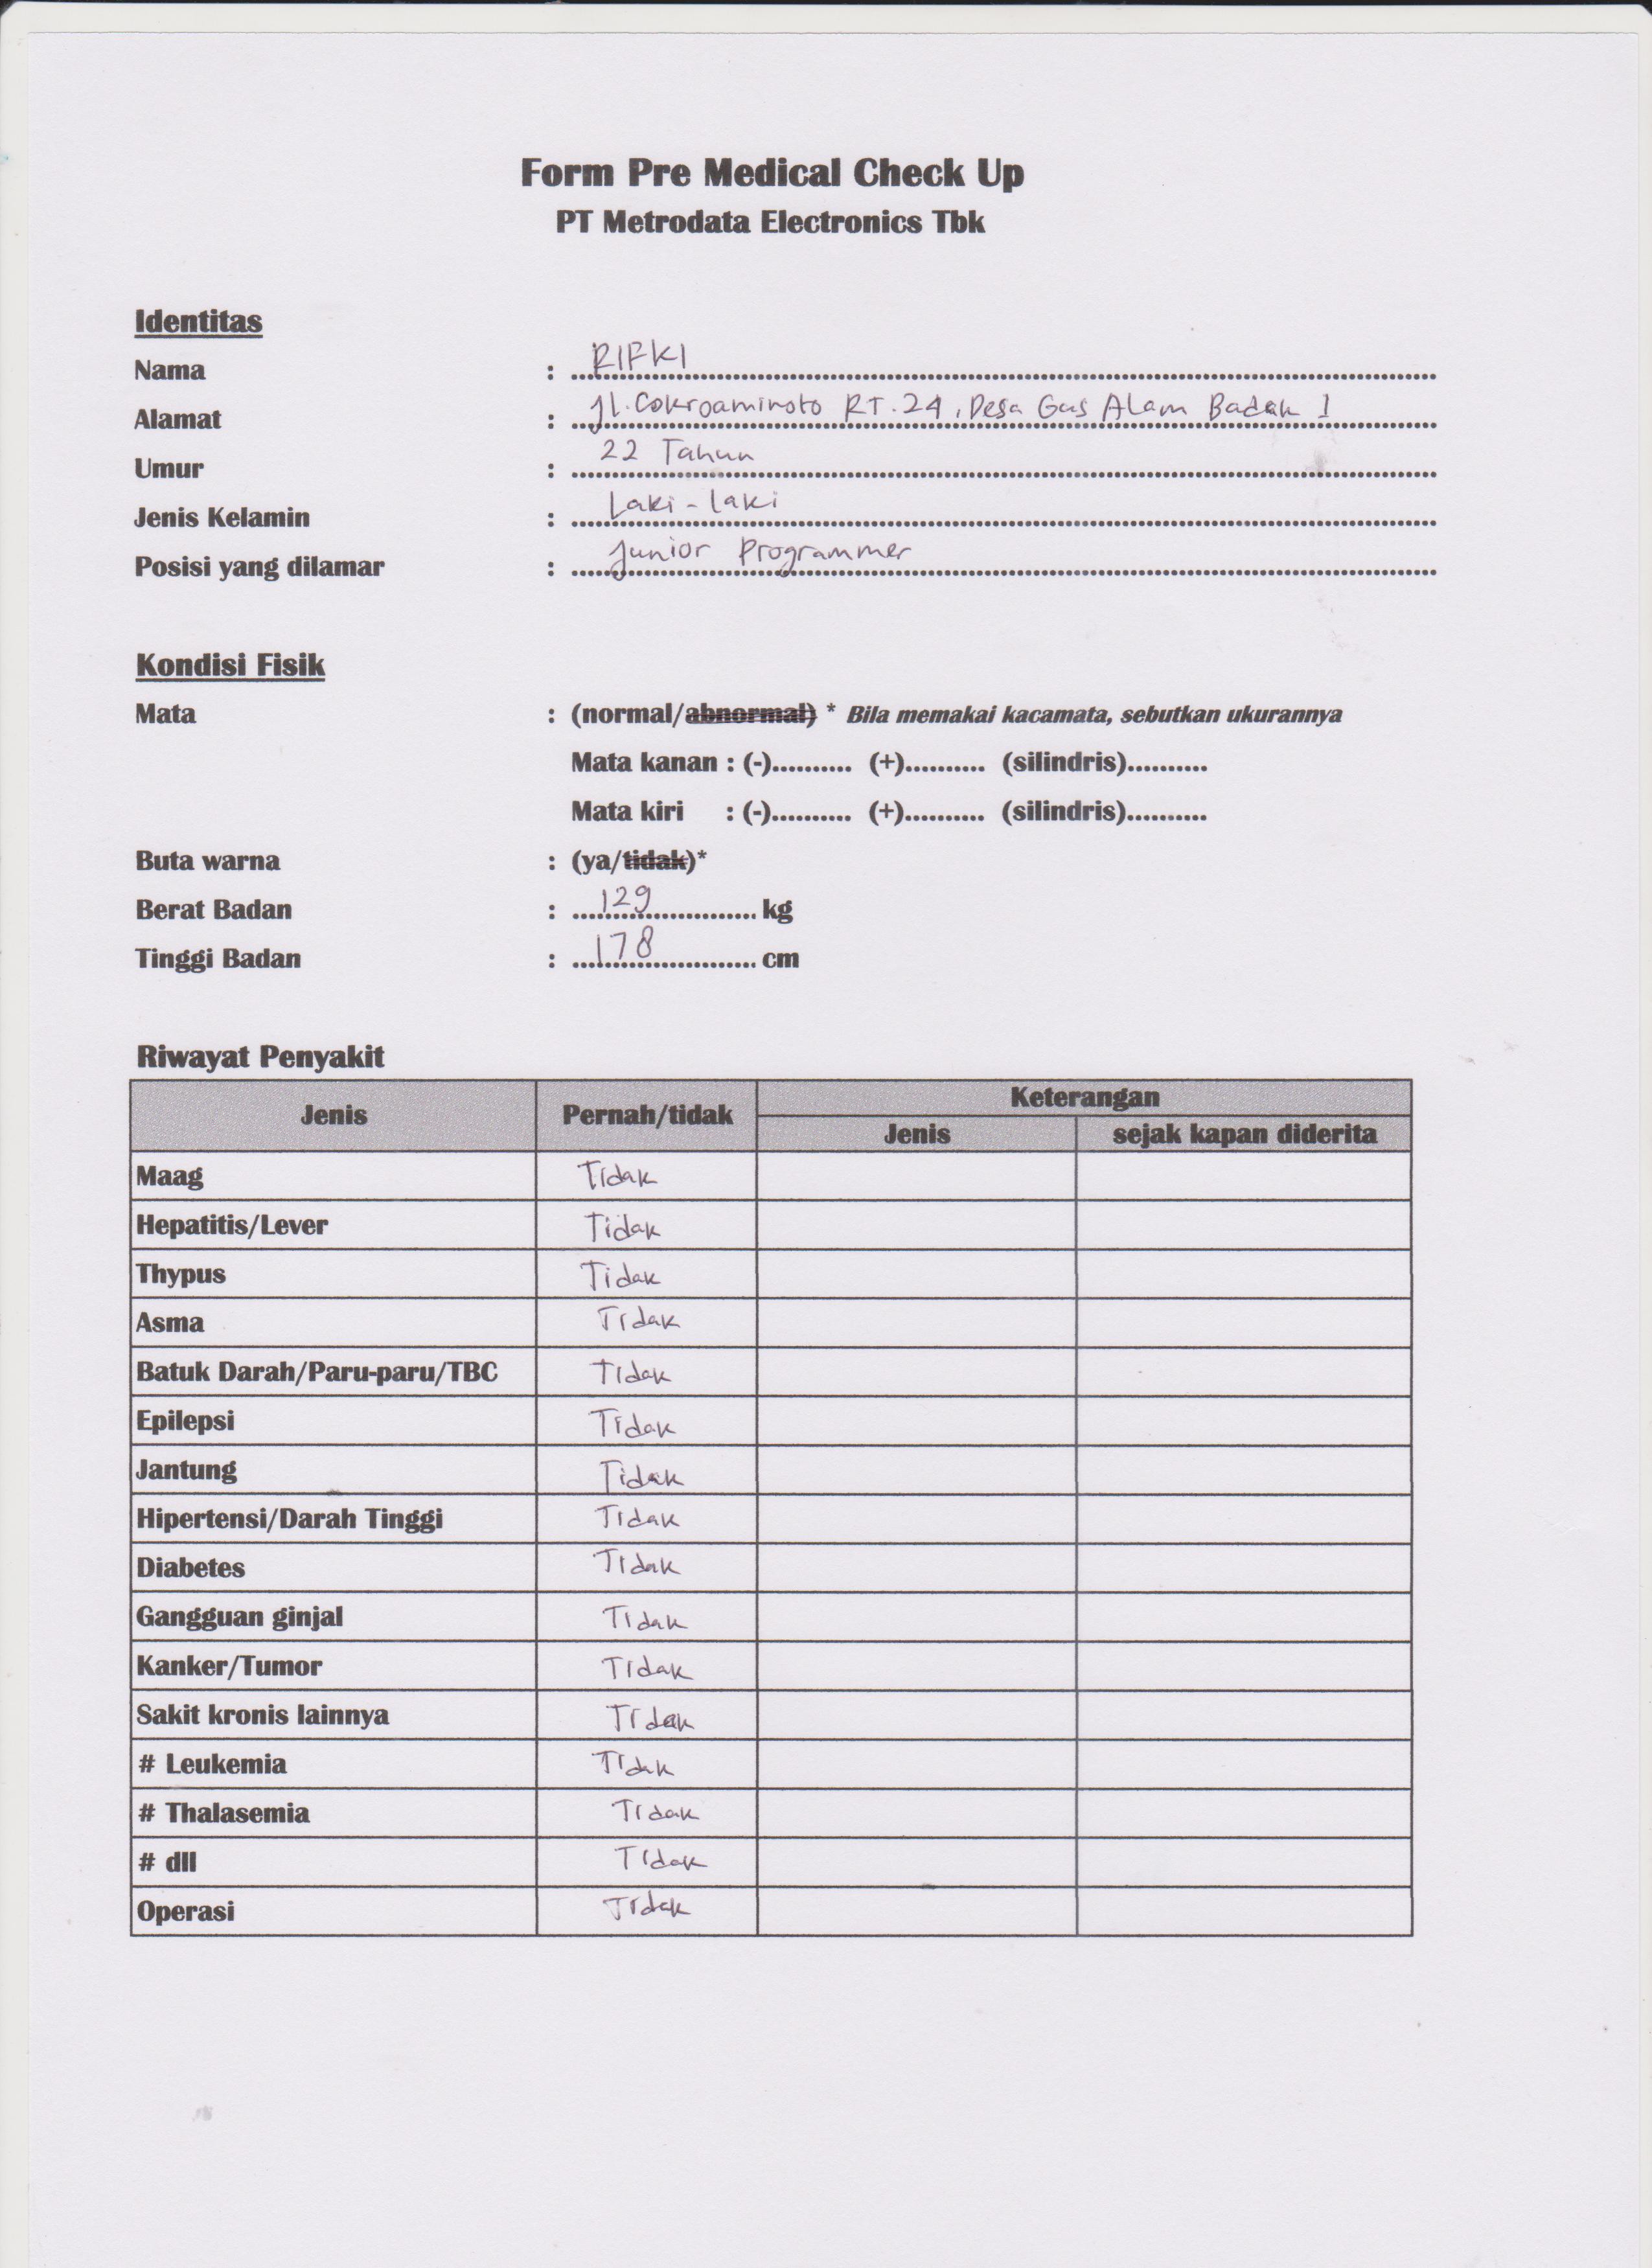 Form Pre Medical Check Up
PT Metrodata Electronics Tbk
Identitas
Nama : RIFKI
Alamat : Jl. Cokroaminoto RT. 24, Desa Gas Alam Badak 1
Umur : 22 Tahun
Jenis Kelamin : Laki - laki
Posisi yang dilamar : Junior Programmer
Kondisi Fisik
Mata : (normal/abnormal) * Bila memakai kacamata, sebutkan ukurannya
Mata kanan : (-).......... (+).......... (silindris)..........
Mata kiri : (-).......... (+).......... (silindris)..........
Buta warna : (ya/tidak)*
Berat Badan : 129 kg
Tinggi Badan : 178 cm
Riwayat Penyakit
Jenis Pernah/tidak Keterangan
Jenis sejak kapan diderita
Maag Tidak
Hepatitis/Lever Tidak
Thypus Tidak
Asma Tidak
Batuk Darah/Paru-paru/TBC Tidak
Epilepsi Tidak
Jantung Tidak
Hipertensi/Darah Tinggi Tidak
Diabetes Tidak
Gangguan ginjal Tidak
Kanker/Tumor Tidak
Sakit kronis lainnya Tidak
# Leukemia Tidak
# Thalasemia Tidak
# dll Tidak
Operasi Tidak